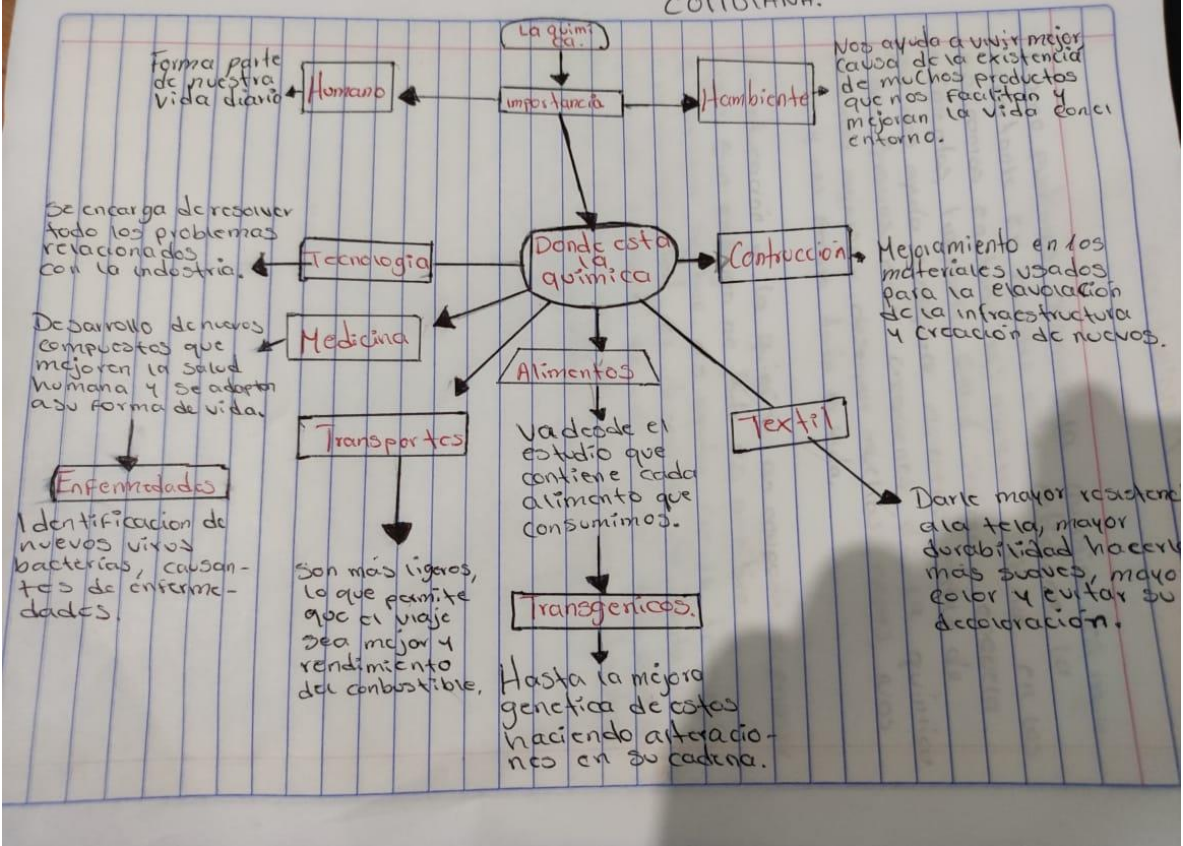 COTIDIANA.
La quimi
ca.
importancia
Humano
Forma parte
de nuestra
vida diario
Hambiente
Nos ayuda a vivir mejor
causa de la existencia
de muchos productos
que nos facilitan y
mejoran la vida conel
entorno.
Donde esta
la
química
Tecnologia
Se encarga de resolver
todo los problemas
relacionados
con la industria.
Contrucción
Mejoramiento en los
materiales usados
para la elavoracion
de la infraestructura
y creación de nuevos.
Medicina
Desarrollo de nuevos
compuestos que
mejoren la salud
humana y se adapten
a su forma de vida.
Enfermedades
Identificacion de
nuevos virus
bacterias, causan-
tes de enferme-
dades.
Transportes
Son más ligeros,
lo que permite
que el viaje
sea mejor y
rendimiento
del conbustible.
Alimentos
Va desde el
estudio que
contiene cada
alimento que
consumimos.
Transgenicos.
Hasta la mejora
genetica de estos
haciendo alteracio-
nes en su cadena.
Textil
Darle mayor resistenc
a la tela, mayor
durabilidad hacerl
más suaves, mayo
color y evitar su
decoloración.